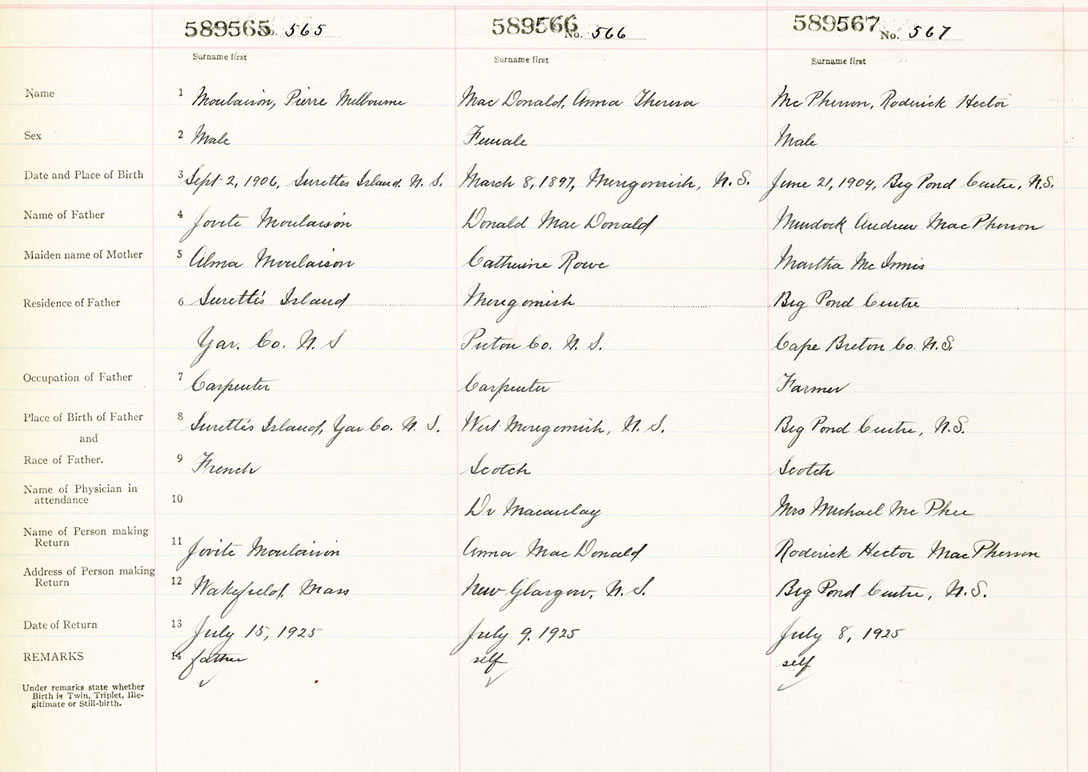 589565 No. 565 589566 No. 566 589567 No. 567
Surname first Surname first Surname first
Name 1 Moulaison, Pierre Melbourne Mac Donald, Anna Theresa Mc Pherson, Roderick Hector
Sex 2 Male Female Male
Date and Place of Birth 3 Sept 2, 1906, Surettes Island. N. S. March 8, 1897, Merigomish, N. S. June 21, 1904, Big Pond Centre, N.S.
Name of Father 4 Jovite Moulaison Donald Mac Donald Murdock Andrew MacPherson
Maiden name of Mother 5 Alma Moulaison Catherine Rowe Martha Mc Innis
Residence of Father 6 Surette's Island Merigomish Big Pond Centre
Yar. Co. N. S Pictou Co. N. S. Cape Breton Co. N.S.
Occupation of Father 7 Carpenter Carpenter Farmer
Place of Birth of Father 8 Surette's Island, Yar Co. N. S. West Merigomish, N. S. Big Pond Centre, N.S.
and
Race of Father. 9 French Scotch Scotch
Name of Physician in
attendance 10 Dr Macaulay Mrs Michael Mc Phee
Name of Person making
Return 11 Jovite Moulaison Anna Mac Donald Roderick Hector MacPherson
Address of Person making
Return 12 Wakefield, Mass New Glasgow, N. S. Big Pond Centre, N.S.
Date of Return 13 July 15, 1925 July 9. 1925 July 8, 1925
REMARKS 14 father self self
Under remarks state whether
Birth is Twin, Triplet, Ille-
gitimate or Still-birth.